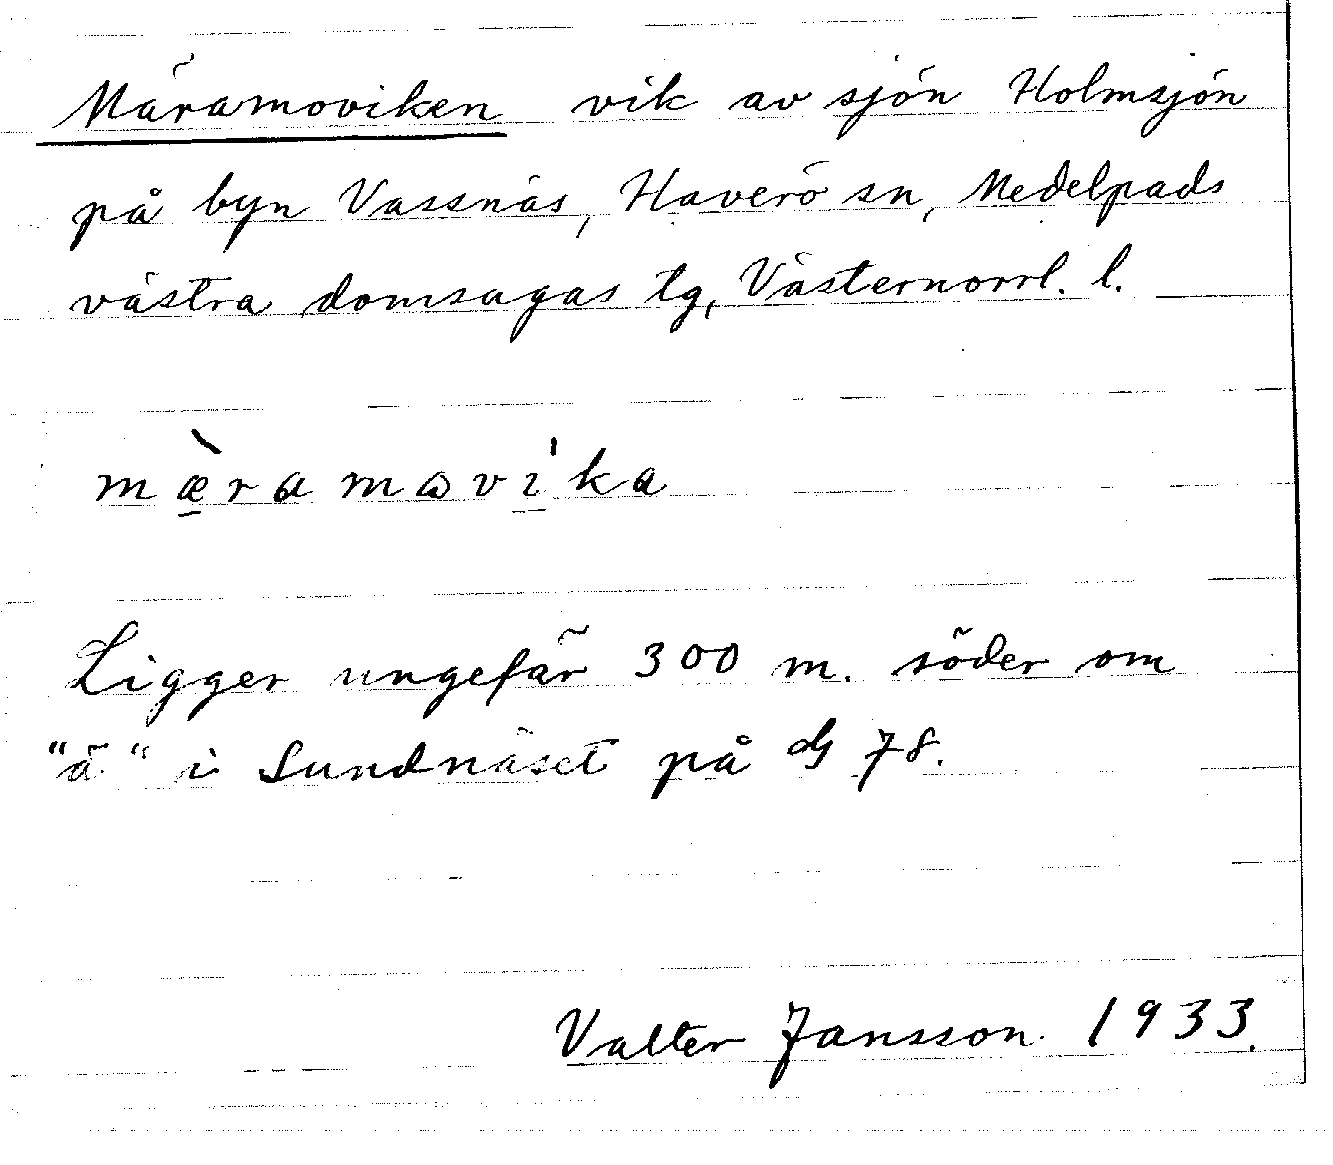 Märamoviken vik av sjön Holmsjön
på byn Vassnäs, Haverö sn, Medelpads
västra domsagas tg, Västernorrl. l.
mæ̀ramovı̍ka
Ligger ungefär 300 m. söder om
"ä" i Sundnäset på 78.
Valter Jansson. 1933.